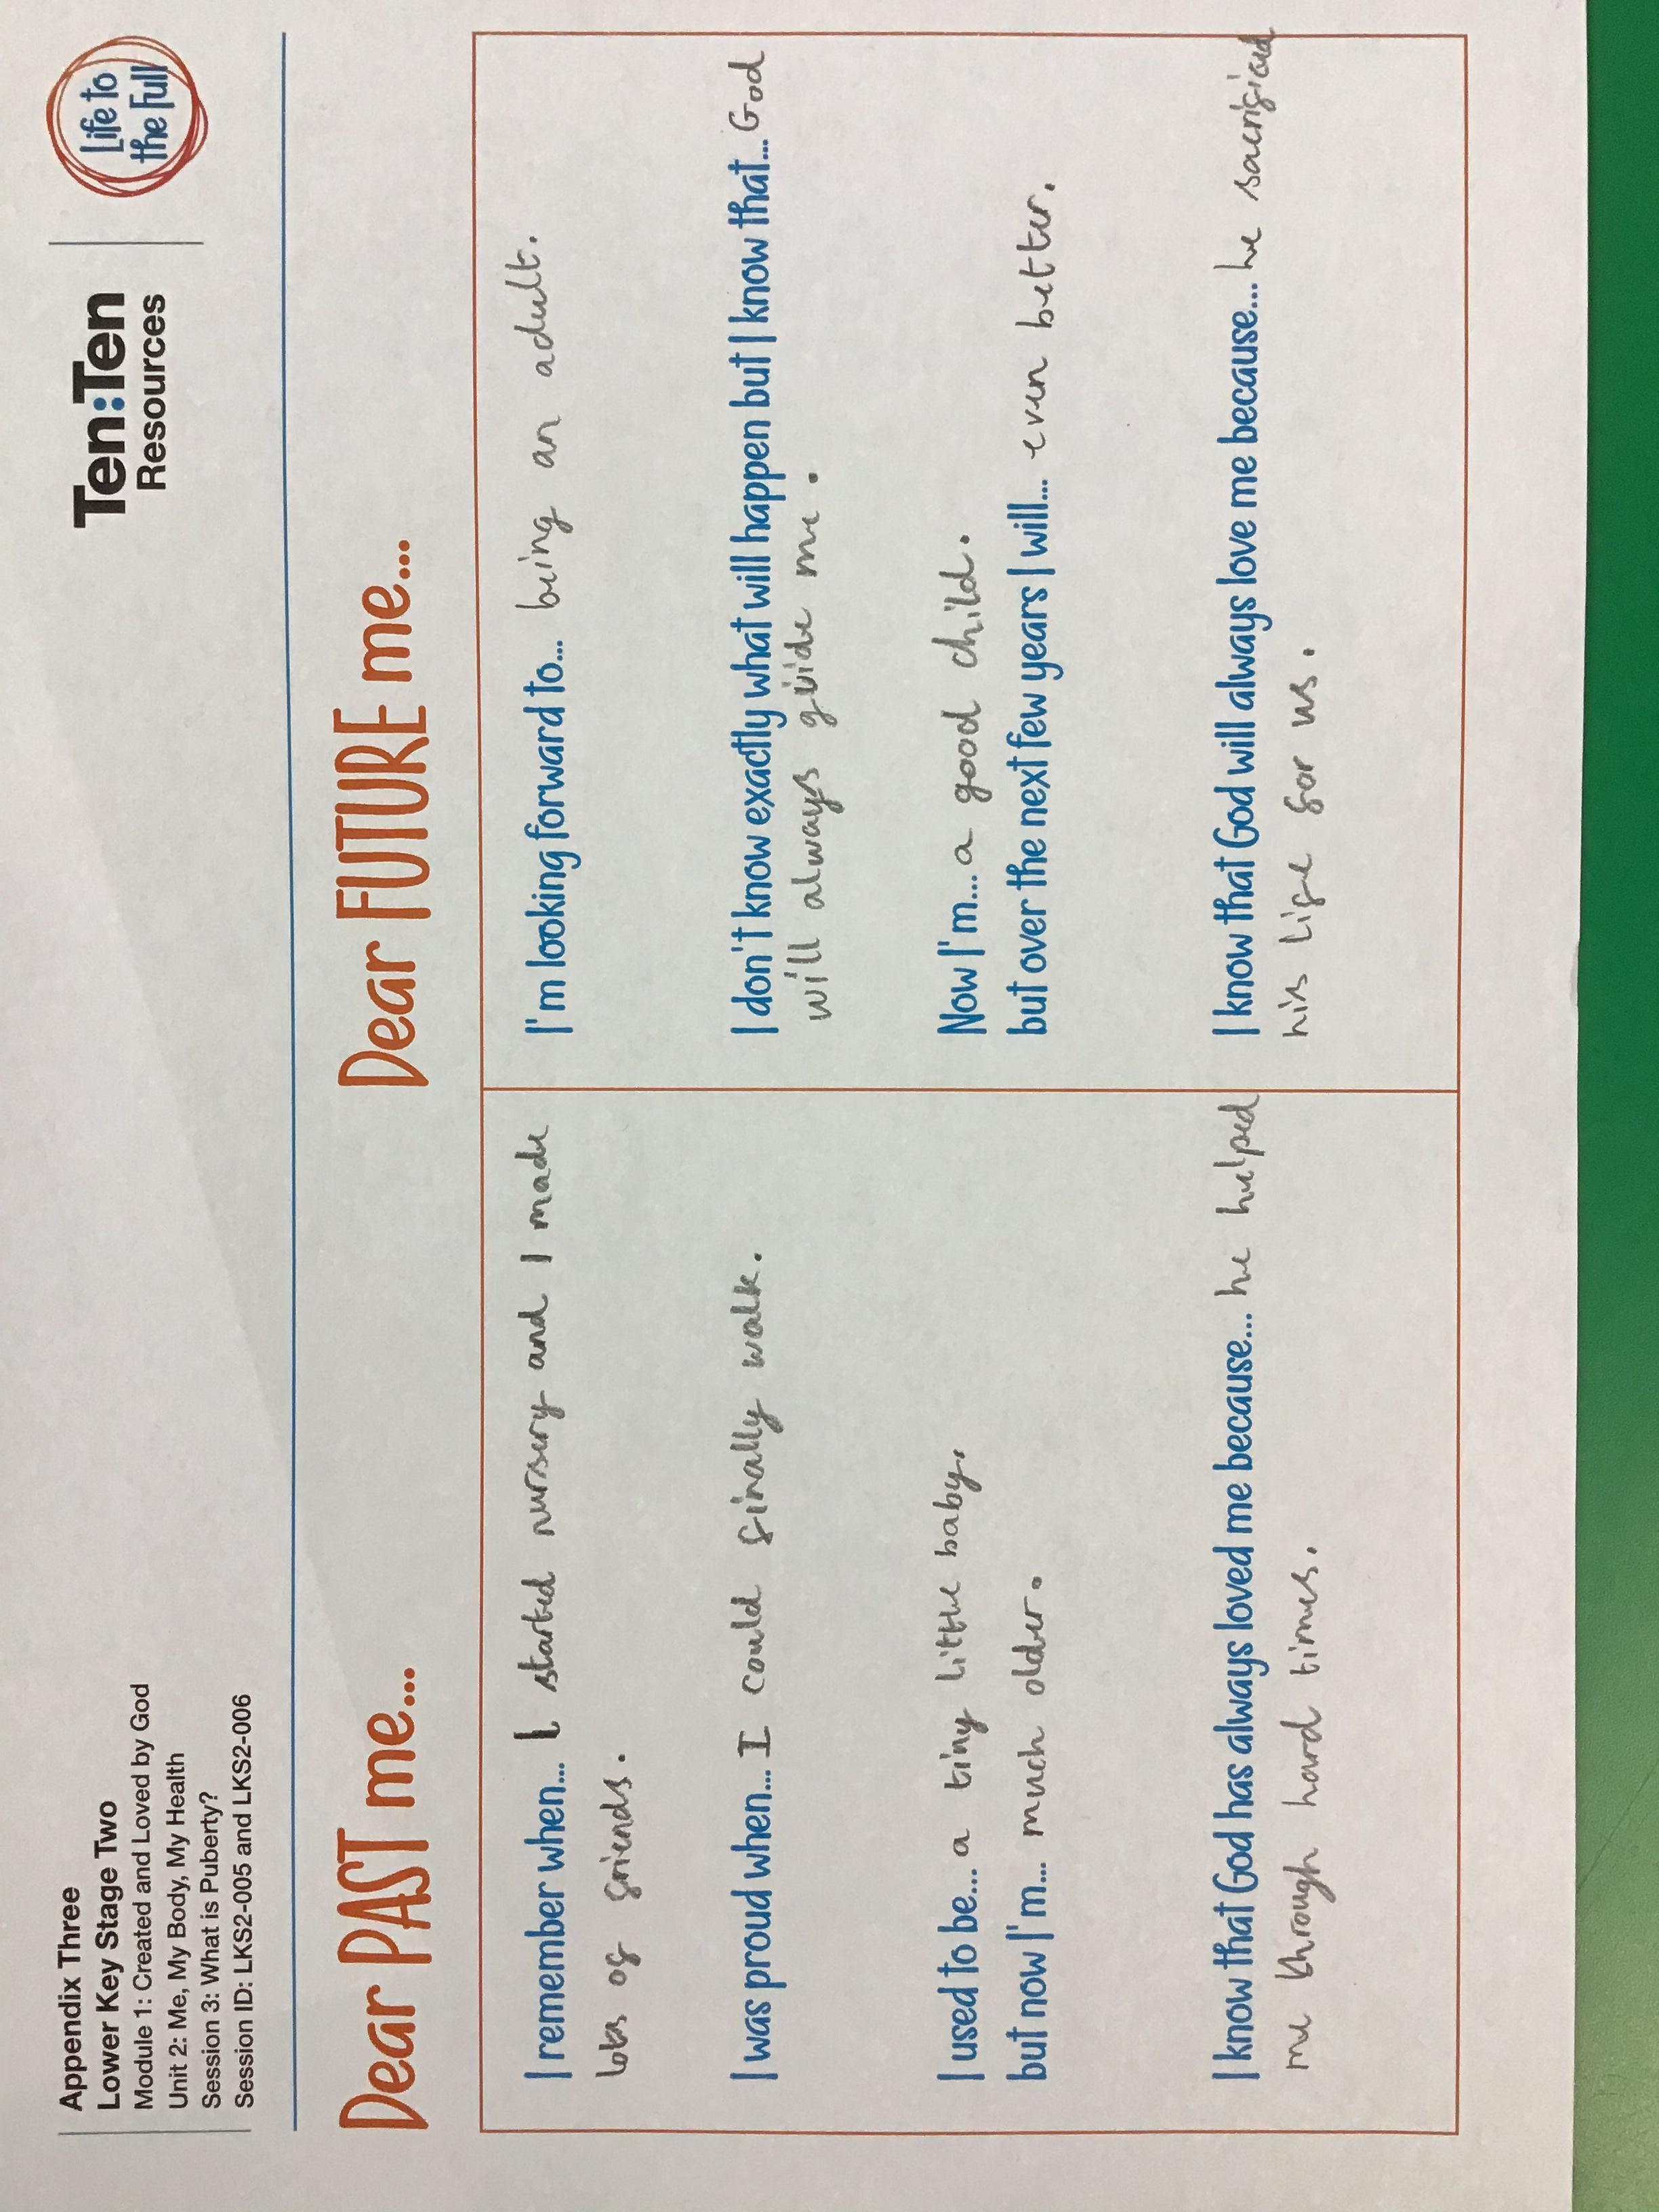 Appendix Three
Lower Key Stage Two
Module 1: Created and Loved by God
Unit 2: Me, My Body, My Health
Session 3: What is Puberty?
Session ID: LKS2-005 and LKS2-006
Ten:Ten
Resources
Life to
the Full
Dear PAST me...
I remember when... I started nursery and I made
lots of friends.
I was proud when... I could finally walk.
I used to be... a tiny little baby.
but now I'm... much older.
I know that God has always loved me because... he helped
me through hard times.
Dear FUTURE me...
I'm looking forward to... being an adult.
I don't know exactly what will happen but I know that... God
will always guide me.
Now I'm... a good child.
but over the next few years I will... even better.
I know that God will always love me because... he sacrificed
his life for us.